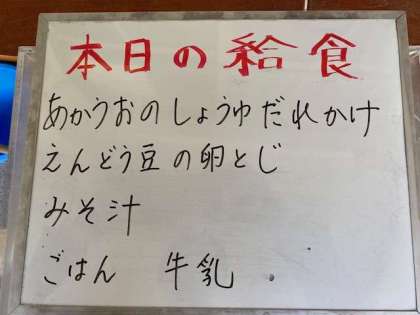 本日の給食
あかうおのしょうゆだれかけ
えんどう豆の卵とじ
みそ汁
ごはん 牛乳